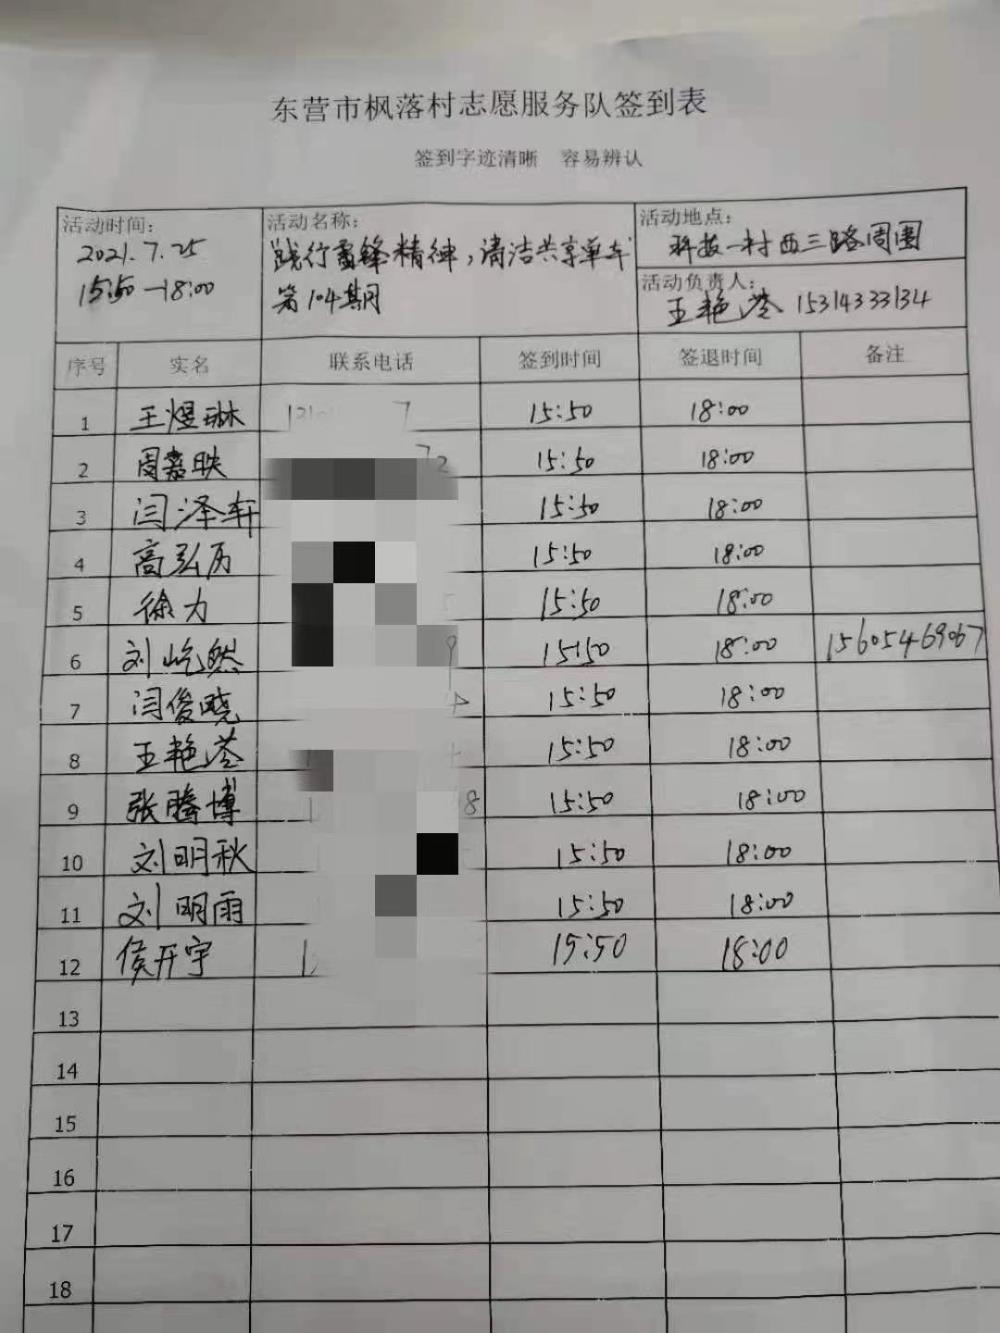 东营市枫落村志愿服务队签到表
签到字迹清晰 容易辨认
活动时间:
2021.7.25
15:50—18:00
活动名称:
践行雷锋精神,清洁共享单车
第104期
活动地点:
科技一村西三路周围
活动负责人:
王艳苓 15314333134
序号 实名 联系电话 签到时间 签退时间 备注
1 王煜琳 15:50 18:00
2 周嘉映 15:50 18:00
3 闫泽轩 15:50 18:00
4 高弘历 15:50 18:00
5 徐力 15:50 18:00
6 刘屹然 15:50 18:00 15605469067
7 闫俊晓 15:50 18:00
8 王艳苓 15:50 18:00
9 张腾博 15:50 18:00
10 刘明秋 15:50 18:00
11 刘明雨 15:50 18:00
12 侯开宇 15:50 18:00
13
14
15
16
17
18